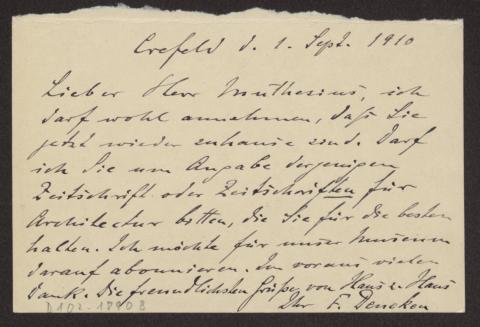 Crefeld d. 1. Sept. 1910
Lieber Herr Muthesius, ich
darf wohl annehmen, daß Sie
jetzt wieder zuhause sind. Darf
ich Sie um Angabe derjenigen
Zeitschrift oder Zeitschriften für
Architectur bitten, die Sie für die besten
halten. Ich möchte für unser Museum
darauf abonnieren. Im voraus vielen
Dank. Die freundlichsten Grüße von Haus z. Haus
Ihr F. Deneken
D 102-17908